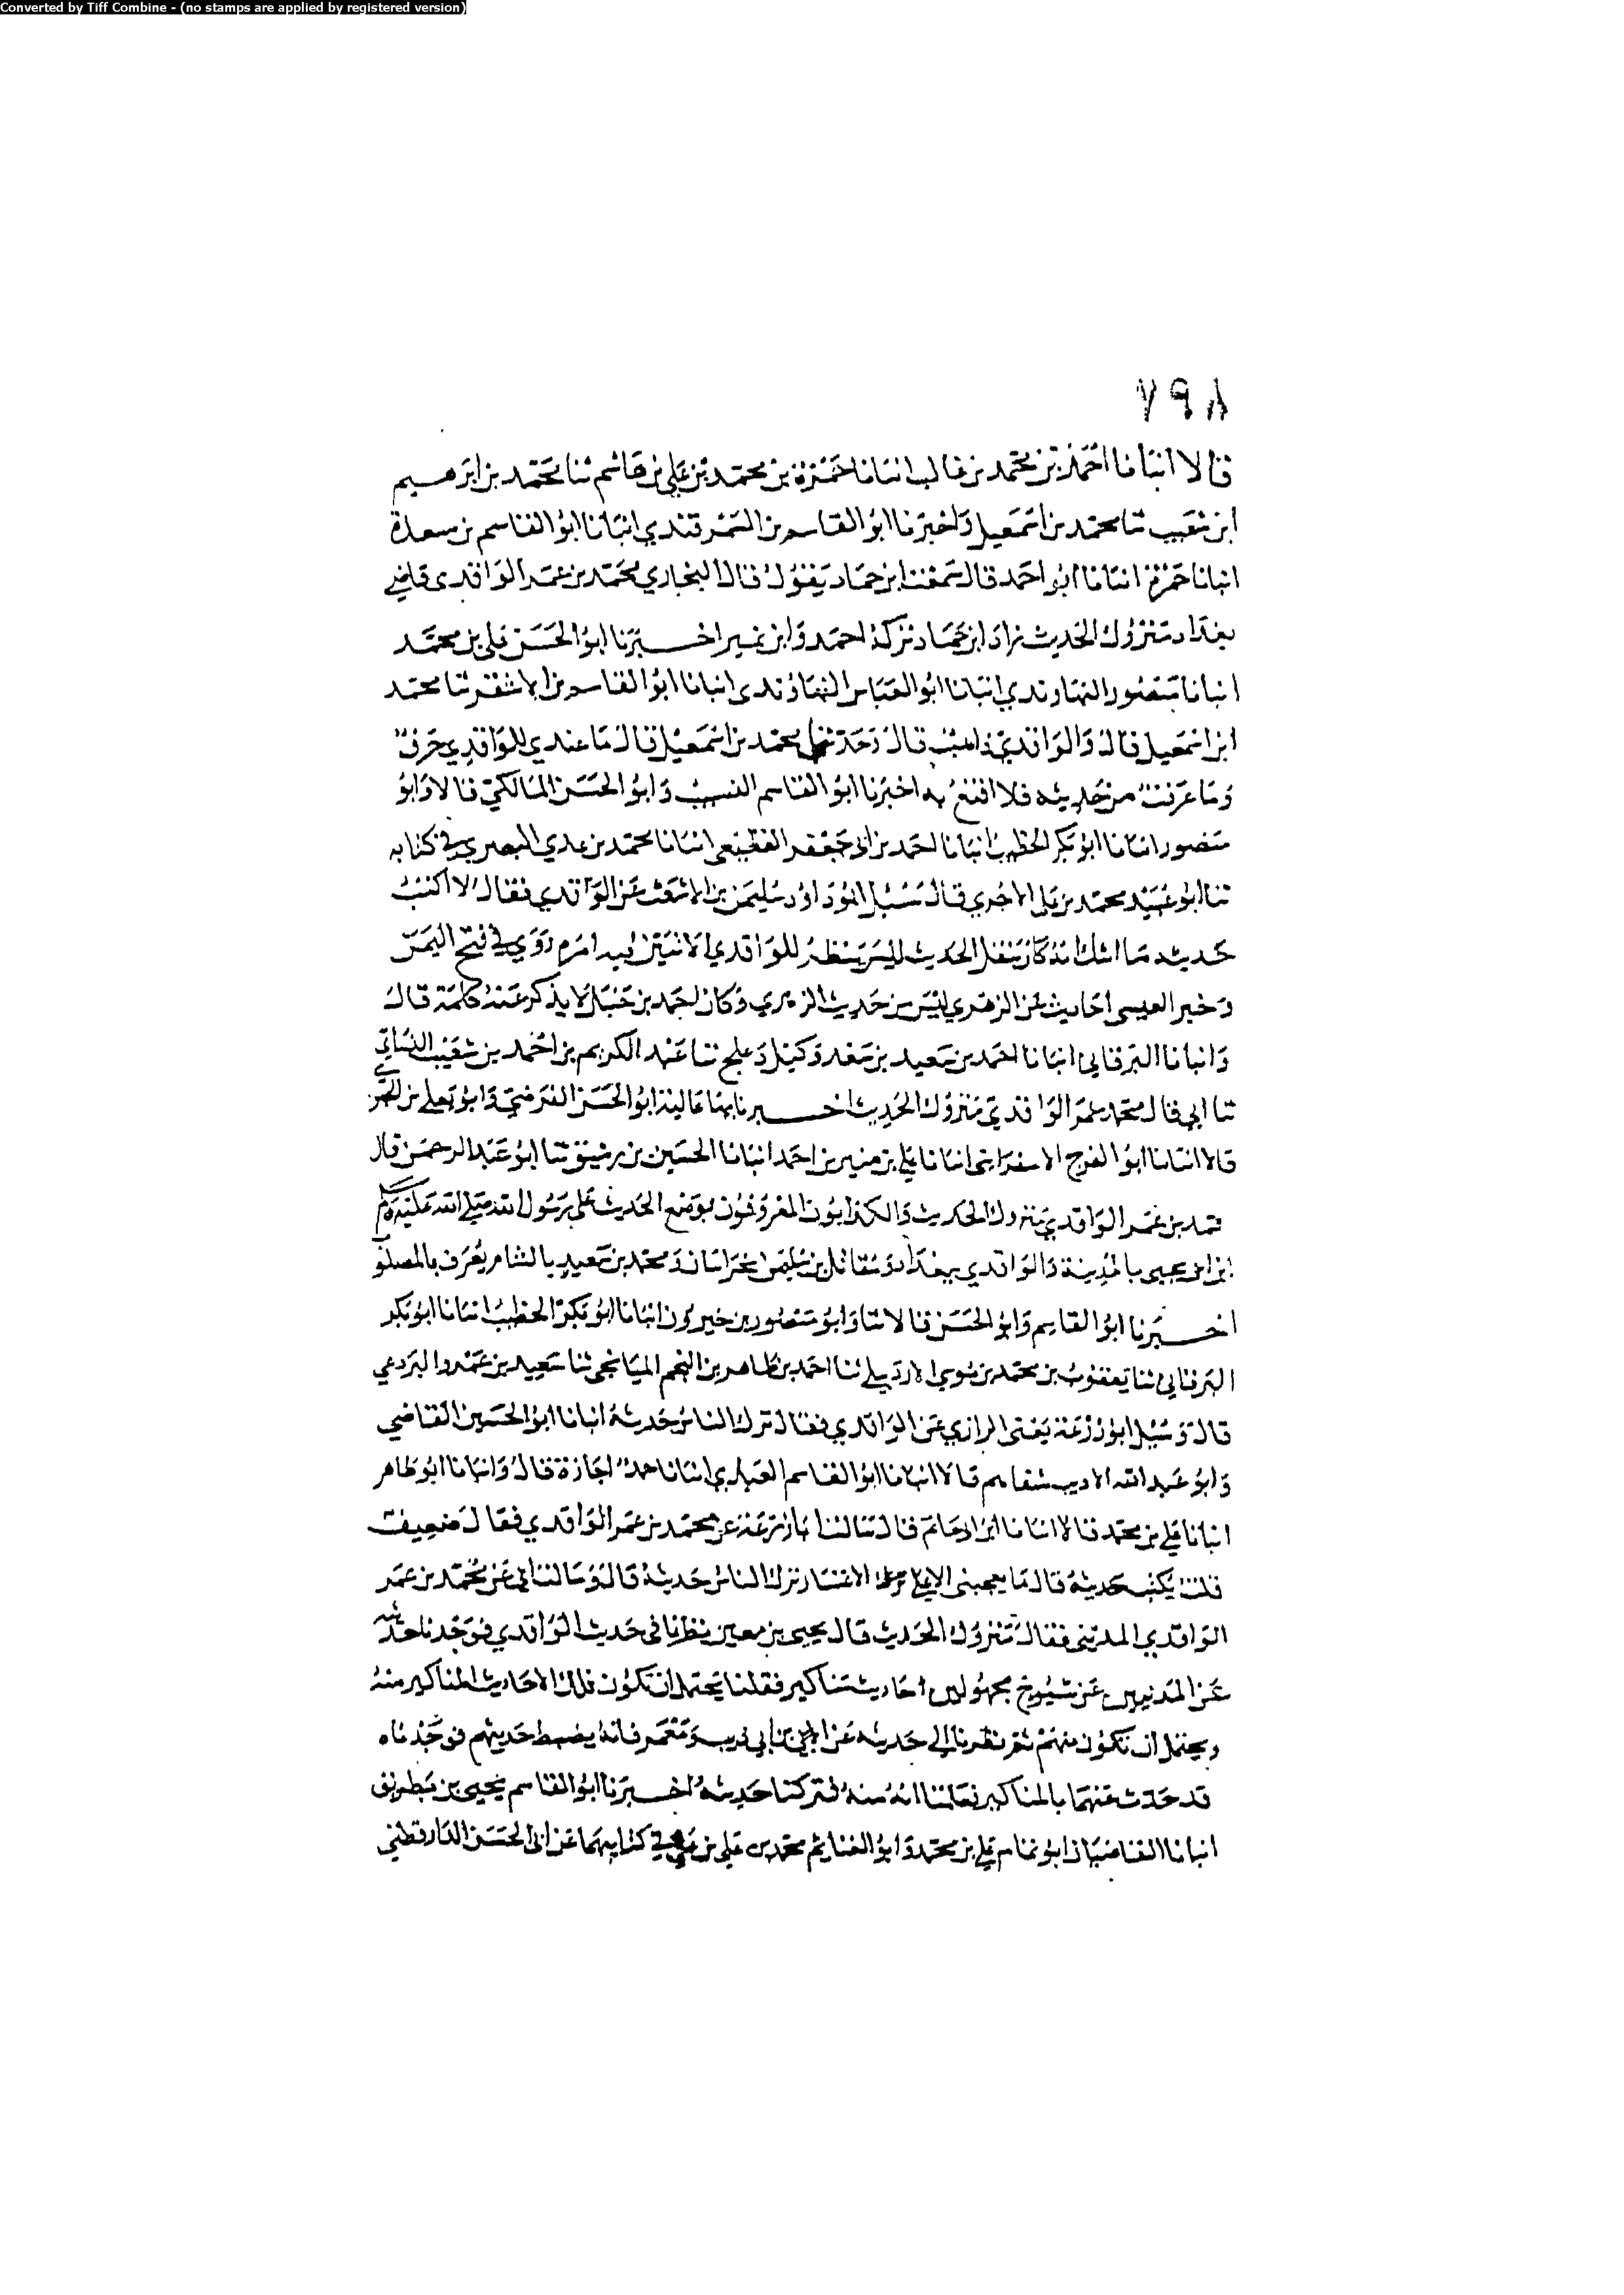 Converted by Tiff Combine - (no stamps are applied by registered version)
٧٩٨
قالا انبانا احمد بن محمد بن غالب انبانا حمزة بن محمد بن علي بن هاشم ثنا محمد بن ابرهيم
ابن شعيب ثنا محمد بن اسمعيل واخبرنا ابو القاسم بن السمرقندي انبانا ابو القاسم بن مسعدة
انبانا حمزة انبانا ابو احمد قال سمعت ابن حماد يقول قال البخاري محمد بن عمر الواقدي قاضي
بغداد متروك الحديث زاد ابن حماد تركه احمد وابن نمير اخبرنا ابو الحسن علي بن محمد
انبانا منصور النهاوندي انبانا ابو العباس النهاوندي انبانا ابو القاسم بن الاشقر ثنا محمد
ابن اسمعيل قال والواقدي ذاهب قال محمد بن اسمعيل قال ما عندي للواقدي حرف
وما عرفت من حديثه فلا اقنع به اخبرنا ابو القاسم النسيب وابو الحسن المالكي قالا وابو
منصور انبانا ابو بكر الخطيب انبانا احمد بن ابي جعفر القطيعي انبانا محمد بن عدي البصري في كتابه
ثنا ابو عبيد محمد بن علي الاجري قال سئل ابو داود سليمن بن الاشعث عن الواقدي فقال لا اكتب
حديثه ما اشك انه كان ينقل الحديث ليس ينظر للواقدي الا تبين فيه امره روي في فتح اليمن
وخبر العيسى احاديث عن الزهري ليس من حديث الزهري وكان احمد بن حنبل لا يذكر عنه كلمة قال
وانبانا البرقاني انبانا احمد بن سعيد بن سعد وكيل دعلج ثنا عبد الكريم بن احمد بن شعيب النسائي
ثنا ابي قال محمد عمر الواقدي متروك الحديث اخبرنا بها عالية ابو الحسن الفرضي وابو يعلى بن
قالا انبانا ابو الفرج الاسفرايني انبانا علي بن منير بن احمد انبانا الحسين بن رشيق ثنا ابو عبد الرحمن قال
محمد بن عمر الواقدي متروك الحديث والكذابون المعروفون بوضع الحديث على رسول الله صلى الله عليه وسلم
ابن ابي يحيى بالمدينة والواقدي ببغداد ومقاتل بن سليمن بخراسان ومحمد بن سعيد بالشام يعرف بالمصلوب
اخبرنا ابو القاسم وابو الحسن قالا ثنا وابو منصور بن خيرون انبانا ابو بكر الخطيب انبانا ابو بكر
البرقاني ثنا يعقوب بن محمد بن موسى الاردبيلي ثنا احمد بن طاهر بن النجم الميانجي ثنا سعيد بن عمرو البردعي
قال وسئل ابو زرعة يعني الرازي عن الواقدي فقال ترك الناس حديثه انبانا ابو الحسين القاضي
وابو عبد الله الاديب شفاهم قالا انبانا ابو القاسم العبدي انبانا حمد اجازة قال وانبانا ابو طاهر
انبانا علي بن محمد قالا انبانا ابن ابي حاتم قال سالت ابا زرعة عن محمد بن عمر الواقدي فقال ضعيف
قلت يكتب حديثه قال ما يعجبني الا على الاعتبار ترك الناس حديثه قال وسالت ابي عن محمد بن عمر
الواقدي المديني فقال متروك الحديث قال يحيى بن معين نظرنا في حديث الواقدي فوجدنا حديثه
عن المدنيين عن شيوخ مجهولين احاديث مناكير فقلنا يحتمل ان تكون تلك الاحاديث المناكير منه
ويحتمل ان تكون منهم ثم نظرنا الى حديثه عن ابن ابي ذيب ومعمر فانه يضبط حديثهم فوجدناه
قد حدث عنهما بالمناكير فعلمنا انه منه فتركنا حديثه اخبرنا ابو القاسم يحيى بن بطريق
انبانا القاضيان ابو تمام علي بن محمد وابو الغنايم محمد بن علي بن علي في كتابيهما عن ابي الحسن الدارقطني